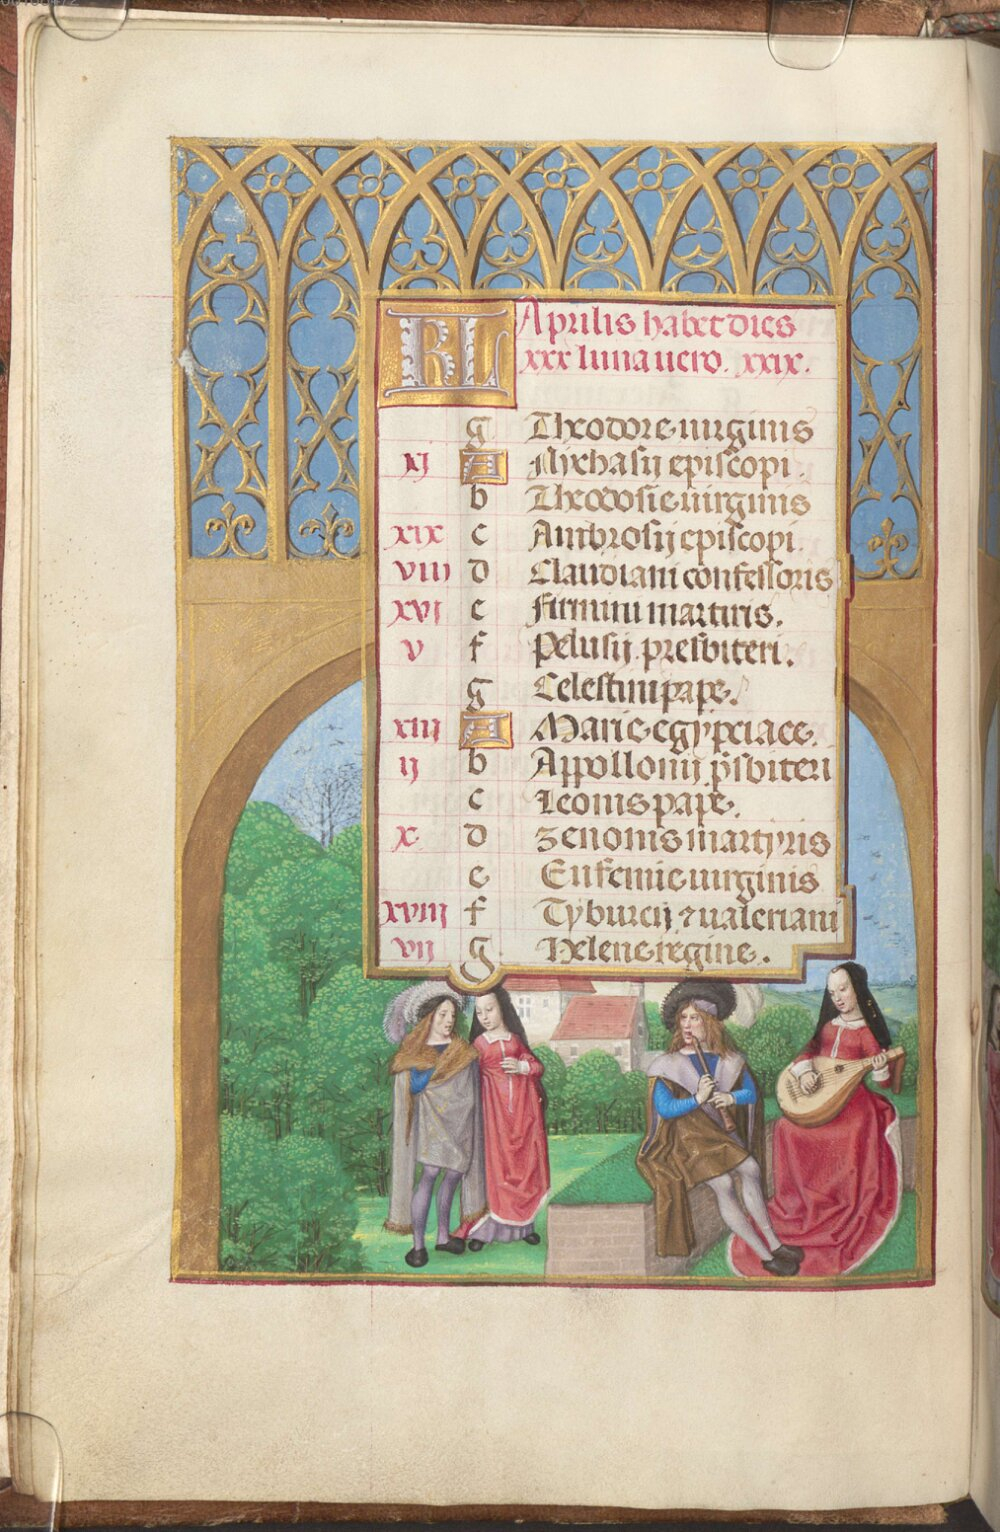 KL Aprilis habet dies
xxx luna uero. xxix.
g Theodore uirginis
xj A Nichasij episcopi.
b Theodosie uirginis
xix c Ambrosij episcopi.
viij d Claudiani confessoris
xvj e Firmini martiris.
v f Pelusij presbiteri.
g Celestini pape.
xiij A Marie egyptiace.
ij b Appollonij p̄sbiteri
c Leonis pape.
x d Zenonis martyris
e Eufemie uirginis
xviij f Tyburcij ⁊ ualeriani
vij g Helene regine.